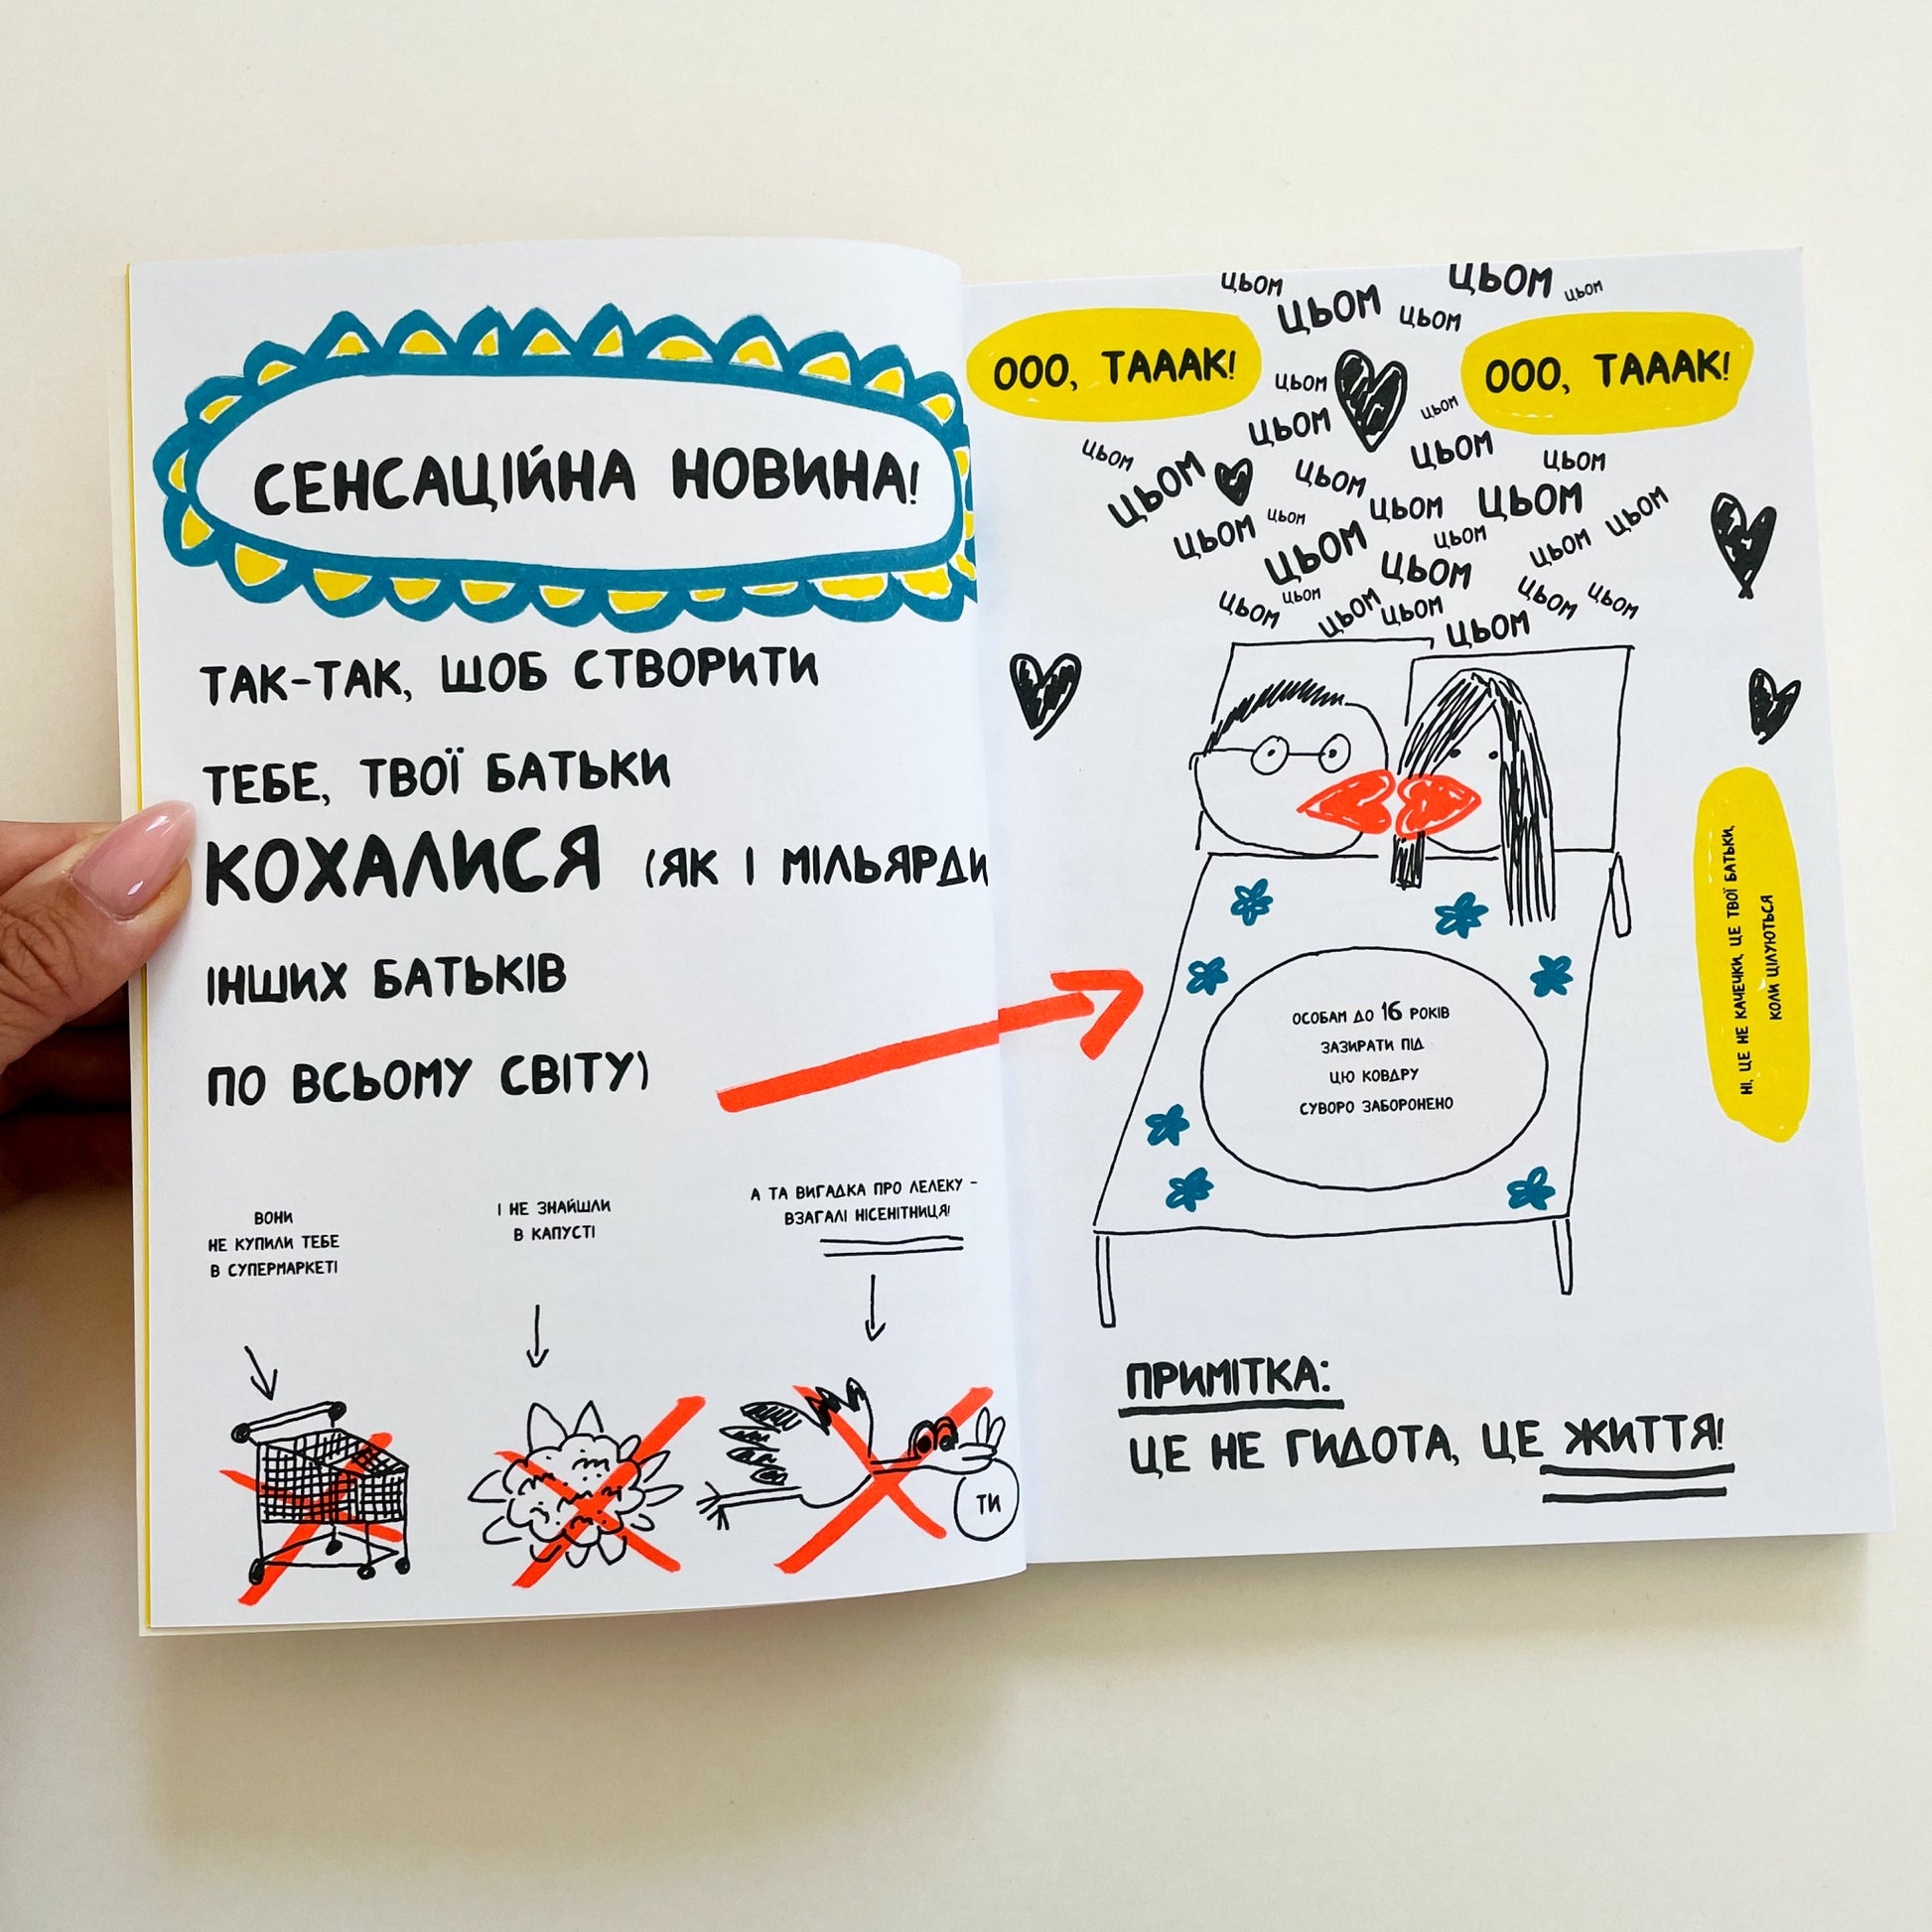 СЕНСАЦІЙНА НОВИНА!
ТАК-ТАК, ЩОБ СТВОРИТИ
ТЕБЕ, ТВОЇ БАТЬКИ
КОХАЛИСЯ (ЯК І МІЛЬЯРДИ
ІНШИХ БАТЬКІВ
ПО ВСЬОМУ СВІТУ)
ВОНИ
НЕ КУПИЛИ ТЕБЕ
В СУПЕРМАРКЕТІ
І НЕ ЗНАЙШЛИ
В КАПУСТІ
А ТА ВИГАДКА ПРО ЛЕЛЕКУ -
ВЗАГАЛІ НІСЕНІТНИЦЯ!
ТИ
ЦЬОМ ЦЬОМ ЦЬОМ
ЦЬОМ ЦЬОМ
ООО, ТАААК!
ООО, ТАААК!
ЦЬОМ ЦЬОМ
ЦЬОМ ЦЬОМ
ЦЬОМ ЦЬОМ ЦЬОМ
ЦЬОМ ЦЬОМ ЦЬОМ ЦЬОМ
ЦЬОМ ЦЬОМ ЦЬОМ ЦЬОМ
ЦЬОМ ЦЬОМ ЦЬОМ
ЦЬОМ ЦЬОМ ЦЬОМ ЦЬОМ ЦЬОМ ЦЬОМ
ЦЬОМ
ОСОБАМ ДО 16 РОКІВ
ЗАЗИРАТИ ПІД
ЦЮ КОВДРУ
СУВОРО ЗАБОРОНЕНО
НІ, ЦЕ НЕ КАЧЕЧКИ, ЦЕ ТВОЇ БАТЬКИ,
КОЛИ ЦІЛУЮТЬСЯ
ПРИМІТКА:
ЦЕ НЕ ГИДОТА, ЦЕ ЖИТТЯ!